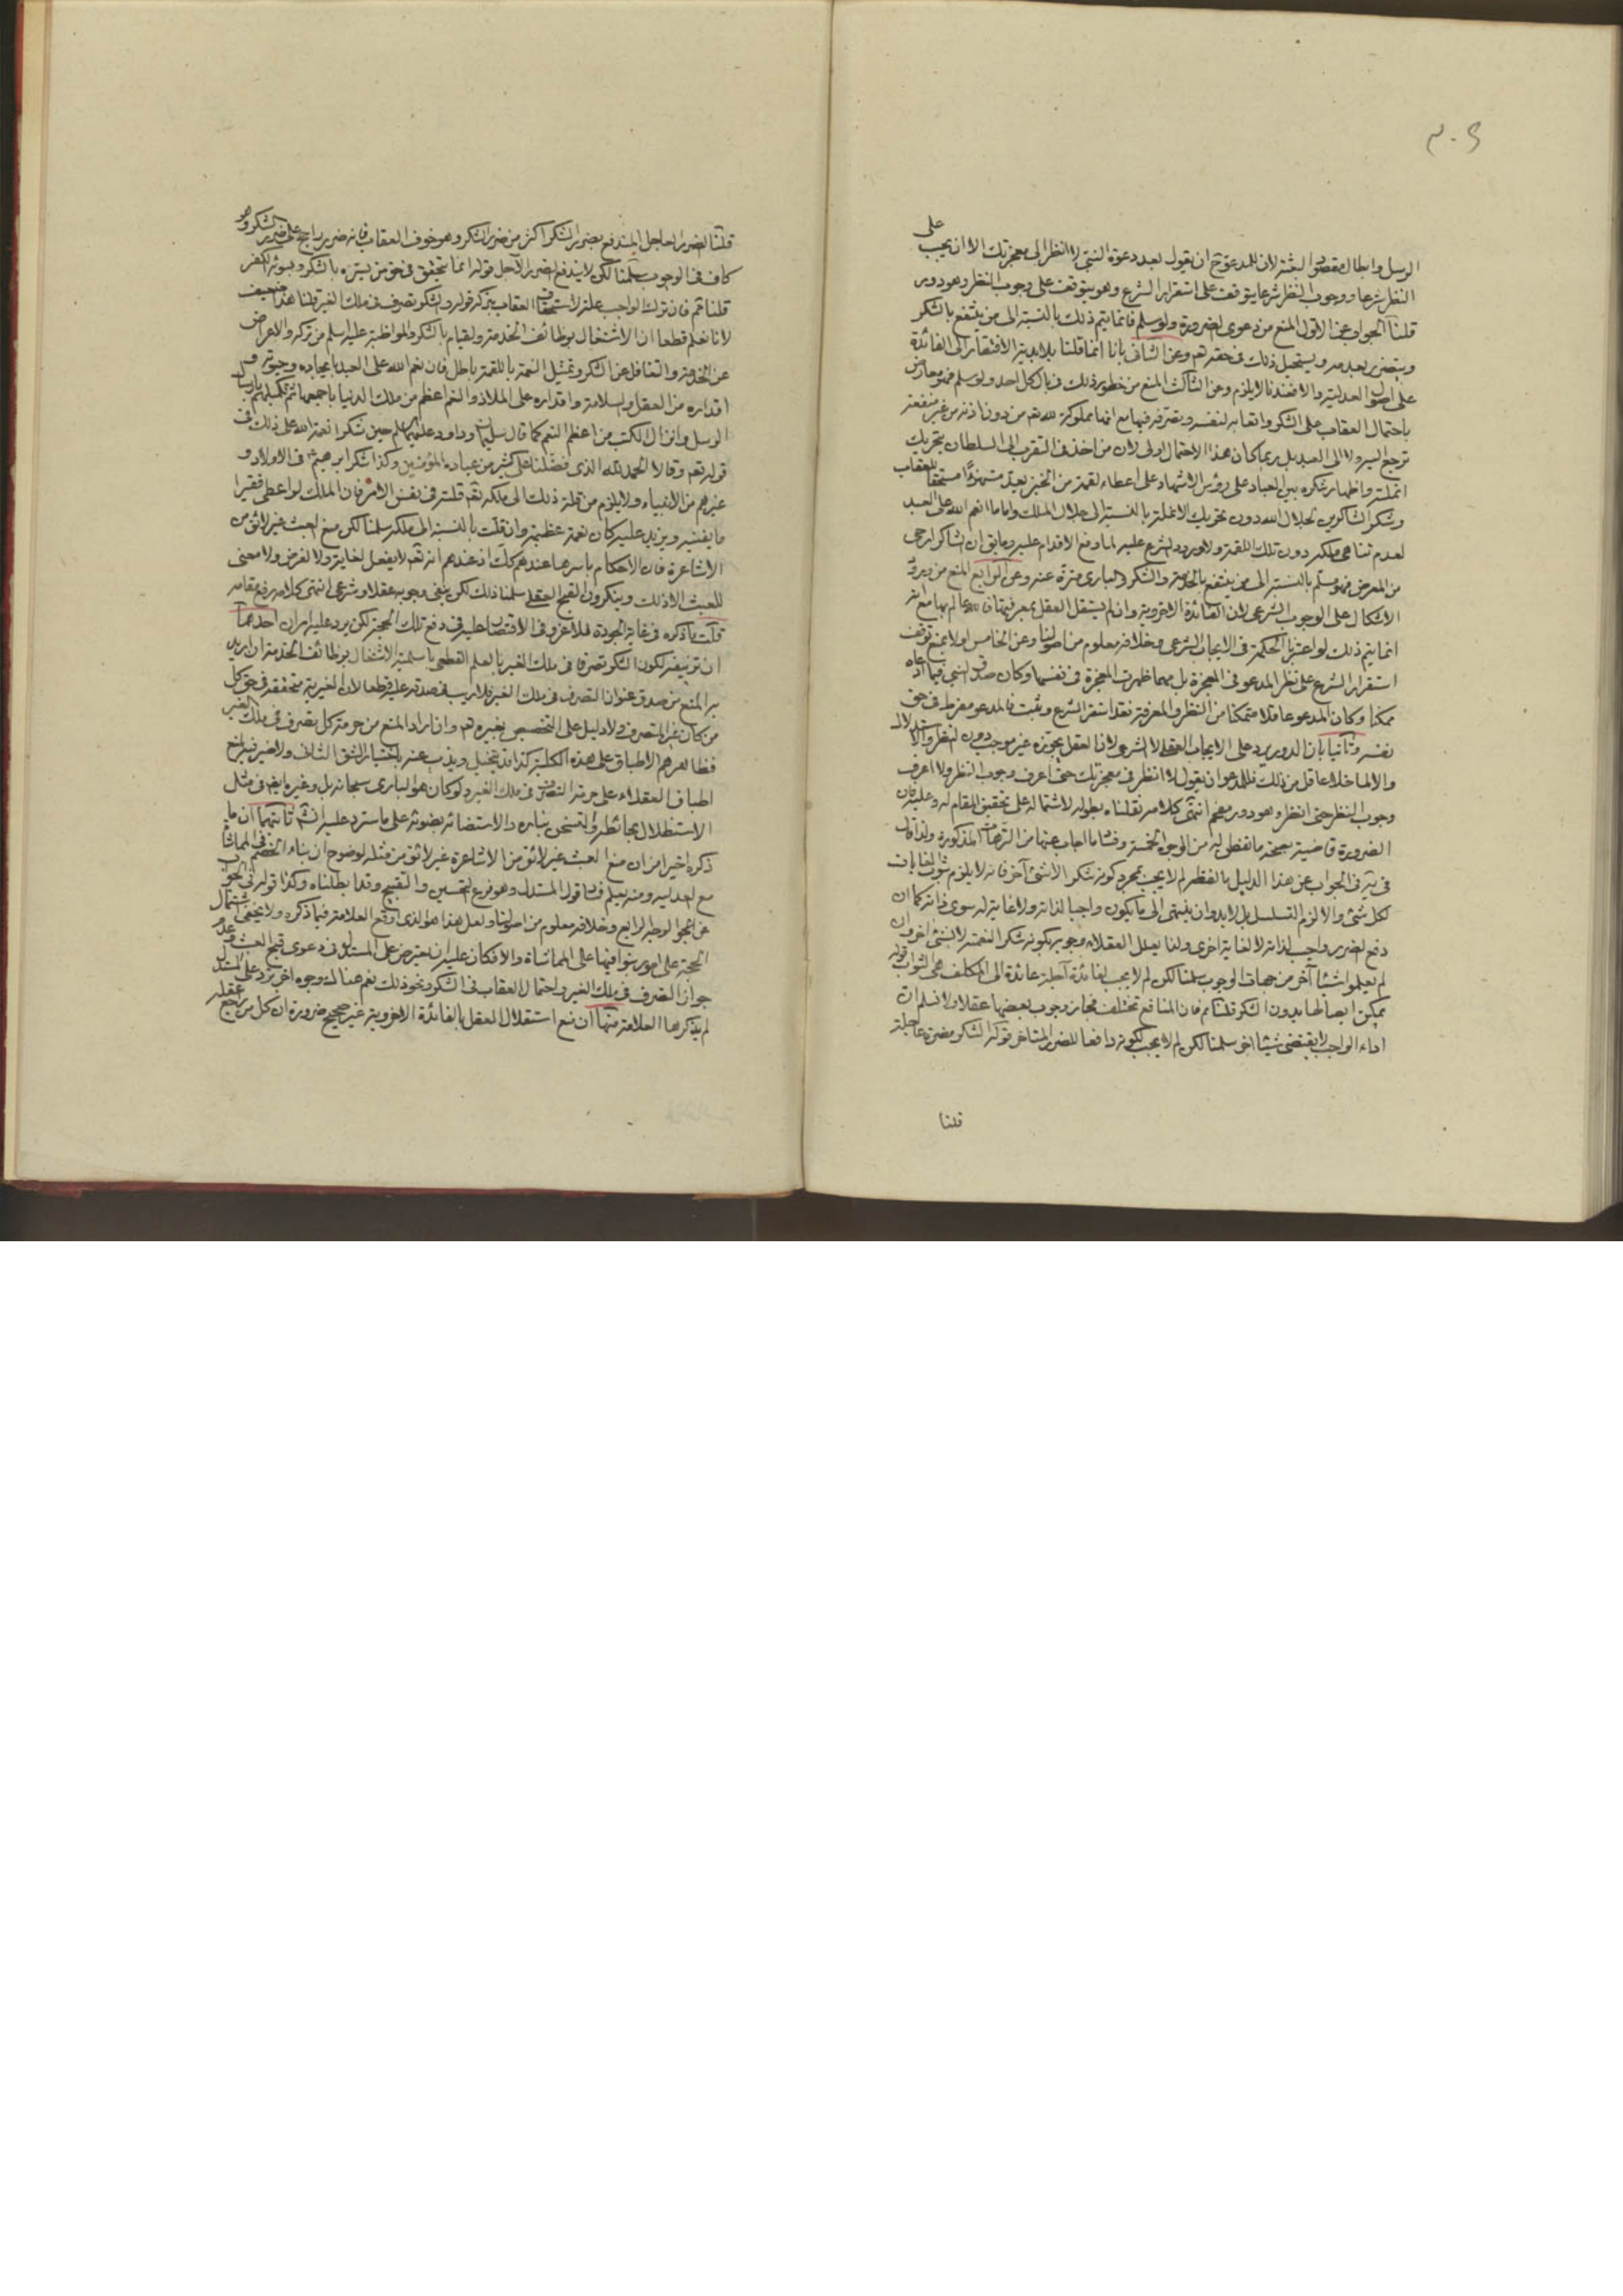 على
الرسل وابطال مقصود البعثة لان للمدعو ح ان يقول بعد دعوة النبي لا انظر الى معجزتك الا ان يجب
النظر شرعا ووجوب النظر شرعا يتوقف على استقرار الشرع وهو يتوقف على وجوب النظر وهو دور
قلنا الجواب عن الاول المنع من دعوى الضرورة ولو سلم فانما يتم ذلك بالنسبة الى من ينتفع بالشكر
ويتضرر بعدمه ويستحيل ذلك في حقه تم وعن الثاني بانا انما قلنا بلابدية الافتقار الى الفائدة
على اصول العدلية والا فعندنا لا يلزم وعن الثالث المنع من خطور ذلك في بال كل احد ولو سلم فهو معارض
باحتمال العقاب على الشكر واتعابه لنفسه وتصرفه فيها مع انها مملوكة لله تم من دون اذنه من غير منفعة
ترجع اليه ولا الى العبد بل ربما كان هذا الاحتمال اولى لان من اخذ في التقرب الى السلطان بتحريك
انملته واظهار شكره بين العباد على رؤس الاشهاد على اعطاء لقمة من الخبز يعد مستهزئا مستحقا للعقاب
وشكر الشاكرين لجلال الله دون تحريك الانملة بالنسبة الى جلال الملك واما ما انعم الله على العبد
لعدم تناهي ملكه دون تلك اللقمة ولا ورود الشرع عليه لما وقع الاقدام عليه وما بق ان الشاكر ارجى
من المعرض فهو مسلم بالنسبة الى من ينتفع بالخدمة والشكر والبارى منزه عنه وعن الرابع المنع من ورود
الاشكال على الوجوب الشرعي لان الفائدة الاخروية وان لم يستقل العقل بمعرفتها فالله عالم بها مع انه
انما يتم ذلك لو اعتبرنا الحكمة في الايجاب الشرعي وخلافه معلوم من اصولنا وعن الخامس اولا بمنع توقف
استقرار الشرع على نظر المدعو في المعجزة بل مهما ظهرت المعجزة في نفسها وكان صدق النبي فيما ادعاه
ممكنا وكان المدعو عاقلا متمكنا من النظر والمعرفة فقد استقر الشرع وثبت فالمدعو مفرط في حق
نفسه وثانيا بان الدور يرد على الايجاب العقلي لا الشرعي لان العقل بمجرده غير موجب دون النظر والاستدلال
والا لما خلا عاقل من ذلك فللمدعو ان يقول لا انظر في معجزتك حتى اعرف وجوب النظر ولا اعرف
وجوب النظر حتى انظر وهو دور مفحم انتهى كلامه نقلناه بطوله لاشتماله على تحقيق المقام له وعليه فان
الضرورة قاضية بصحة ما تفطن له من الوجوه الخمسة وفساد ما اجاب عنها من الترهات المذكورة ولذا قال
في ية في الجواب عن هذا الدليل بالفظه لم لا يجب بمجرد كونه شكرا لا لشئ آخر فانه لا يلزم ثبوت الغايات
لكل شئ والا لزم التسلسل بل لا بد وان ينتهى الى ما يكون واجبا لذاته ولا غاية له سوى ذاته كما ان
دفع الضرر واجب لذاته لا لغاية اخرى ولذا يعلل العقلاء وجوبه بكونه شكر النعمة لا لشئ اخر وان
لم يعلموا شيئا آخر من جهات الوجوب سلمنا لكن لم لا يجب لفائدة آجلة عائدة الى المكلف هي الثواب قوله
يمكن ايصالها بدون الشكر قلنا تم فان المنافع تختلف فجاز وجوب بعضها عقلا ولا نسلم ان
اداء الواجب لا يقتضى شيئا اخر سلمنا لكن لم لا يجب لكونه دافعا للضرر المتاخر قوله الشكر مضرة عاجلة
قلنا
قلنا الضرر العاجل المندفع بضرر الشكر اكثر من ضرر الشكر وهو خوف العقاب فانه ضرر راجح على ضرر الشكر وهو
كاف في الوجوب سلمنا لكن لا يندفع الضرر الآجل قوله انما يتحقق في حق من يسره بالشكر ويسوئه الكفر
قلنا تم فان ترك الواجب علة لاستحقاق العقاب بتركه قوله الشكر تصرف في ملك الغير قلنا هذا ضعيف
لانا نعلم قطعا ان الاشتغال بوظائف الخدمة والقيام بالشكر والمواظبة عليه اسلم من تركه والاعراض
عن الخدمة والتغافل عن الشكر وتمثيل النعمة باللقمة باطل فان نعم الله على العبد بايجاده
اقداره من العقل والسلامة واقداره على الملاذ والنعم اعظم من ملك الدنيا باجمعها ثم تكميلهم بارسال
الرسل وانزال الكتب من اعظم النعم كما قال سليمان وداود عليهما السلم حين شكرا نعمة الله على ذلك في
قوله تعم وقالا الحمد لله الذى فضلنا على كثير من عباده المؤمنين وكذا شكر ابرهيم في الاولاد و
غيرهم من الانبياء ولا يلزم من قلة ذلك الى ملكه تعم قلته في نفس الامر فان الملك لو اعطى فقيرا
ما يغنيه ويزيد عليه كان نعمة عظيمة وان قلت بالنسبة الى ملكه سلمنا لكن منع العبث غير لائق من
الاشاعرة فان الاحكام باسرها عندهم كك اذ عندهم انه تعم لا يفعل لغاية ولا لغرض ولا معنى
للعبث الا ذلك وينكرون القبح العقلي سلمنا ذلك لكن ينفى وجوبه عقلا وشرعا انتهى كلامه رفع مقامه
قلت ما ذكره في غاية الجودة فلا غرو في الاقتصار عليه في دفع تلك الحجة لكن يرد عليه امران احدهما
ان تزييفه لكون الشكر تصرفا في ملك الغير بالعلم القطعي باسلمية الاشتغال بوظائف الخدمة ان اريد
به المنع من صدق عنوان التصرف في ملك الغير فلا ريب في صدقه عليه قطعا لان الغيرية متحققة في حق كل
من كان غير المتصرف ولا دليل على التخصيص بغيره تعم وان اراد المنع من حرمة كل تصرف في ملك الغير
فظاهرهم الاطباق على هذه الكلية كذا قد يتخيل ويذب عنه باختيار الشق الثاني ولا ضير فيه اذ
اطباق العقلاء على حرمة التصرف في ملك الغير ولو كان هو البارى سبحانه بل وغيره ايضا في مثل
الاستظلال بحائطه والتسخن بناره والاستضائة بضوئه على ما سترد عليه انشم ثانيهما ان ما
ذكره اخيرا من ان منع العبث غير لائق من الاشاعرة غير لائق من مثله لوضوح ان بناء الخصم في المماشاة
مع العدلية ومنه يعلم فساد قول المستدل وهو فرع التحسين والتقبيح وقد ابطلناه وكذا قوله في الجواب
عن الوجه الرابع وخلافه معلوم من اصولنا ولعل هذا هو الذى اوقع العلامة فيما ذكره ولا يخفى اشتمال
الحجة على امور بنوا فيها على المماشاة والا فكان عليه ان يعترض على المستدل في دعوى قبح العبث وعدم
جواز التصرف في ملك الغير واحتمال العقاب في الشكر ونحو ذلك نعم هنالك وجوه اخر ترد على المستدل
لم يذكرها العلامة منها ان منع استقلال العقل بالفائدة الاخروية غير صحيح ضرورة ان كل من راجع عقله